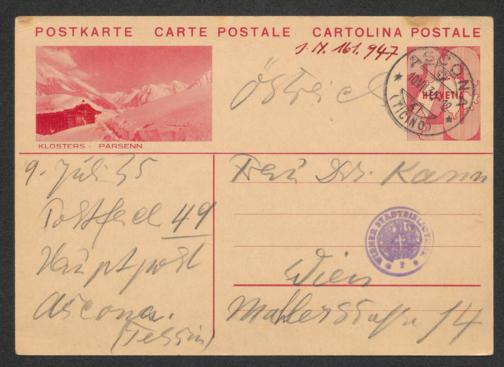 POSTKARTE CARTE POSTALE CARTOLINA POSTALE
I.N. 161.947
Östreich
ASCONA
10.VII.35
(TICINO)
HELVETIA
KLOSTERS - PARSENN
9. Juli 35
Postfach 49
Hauptpost
Ascona.
(Tessin)
Frau Dr. Kann
WIENER STADTBIBLIOTHEK
Wien
Mahlerstraße 14